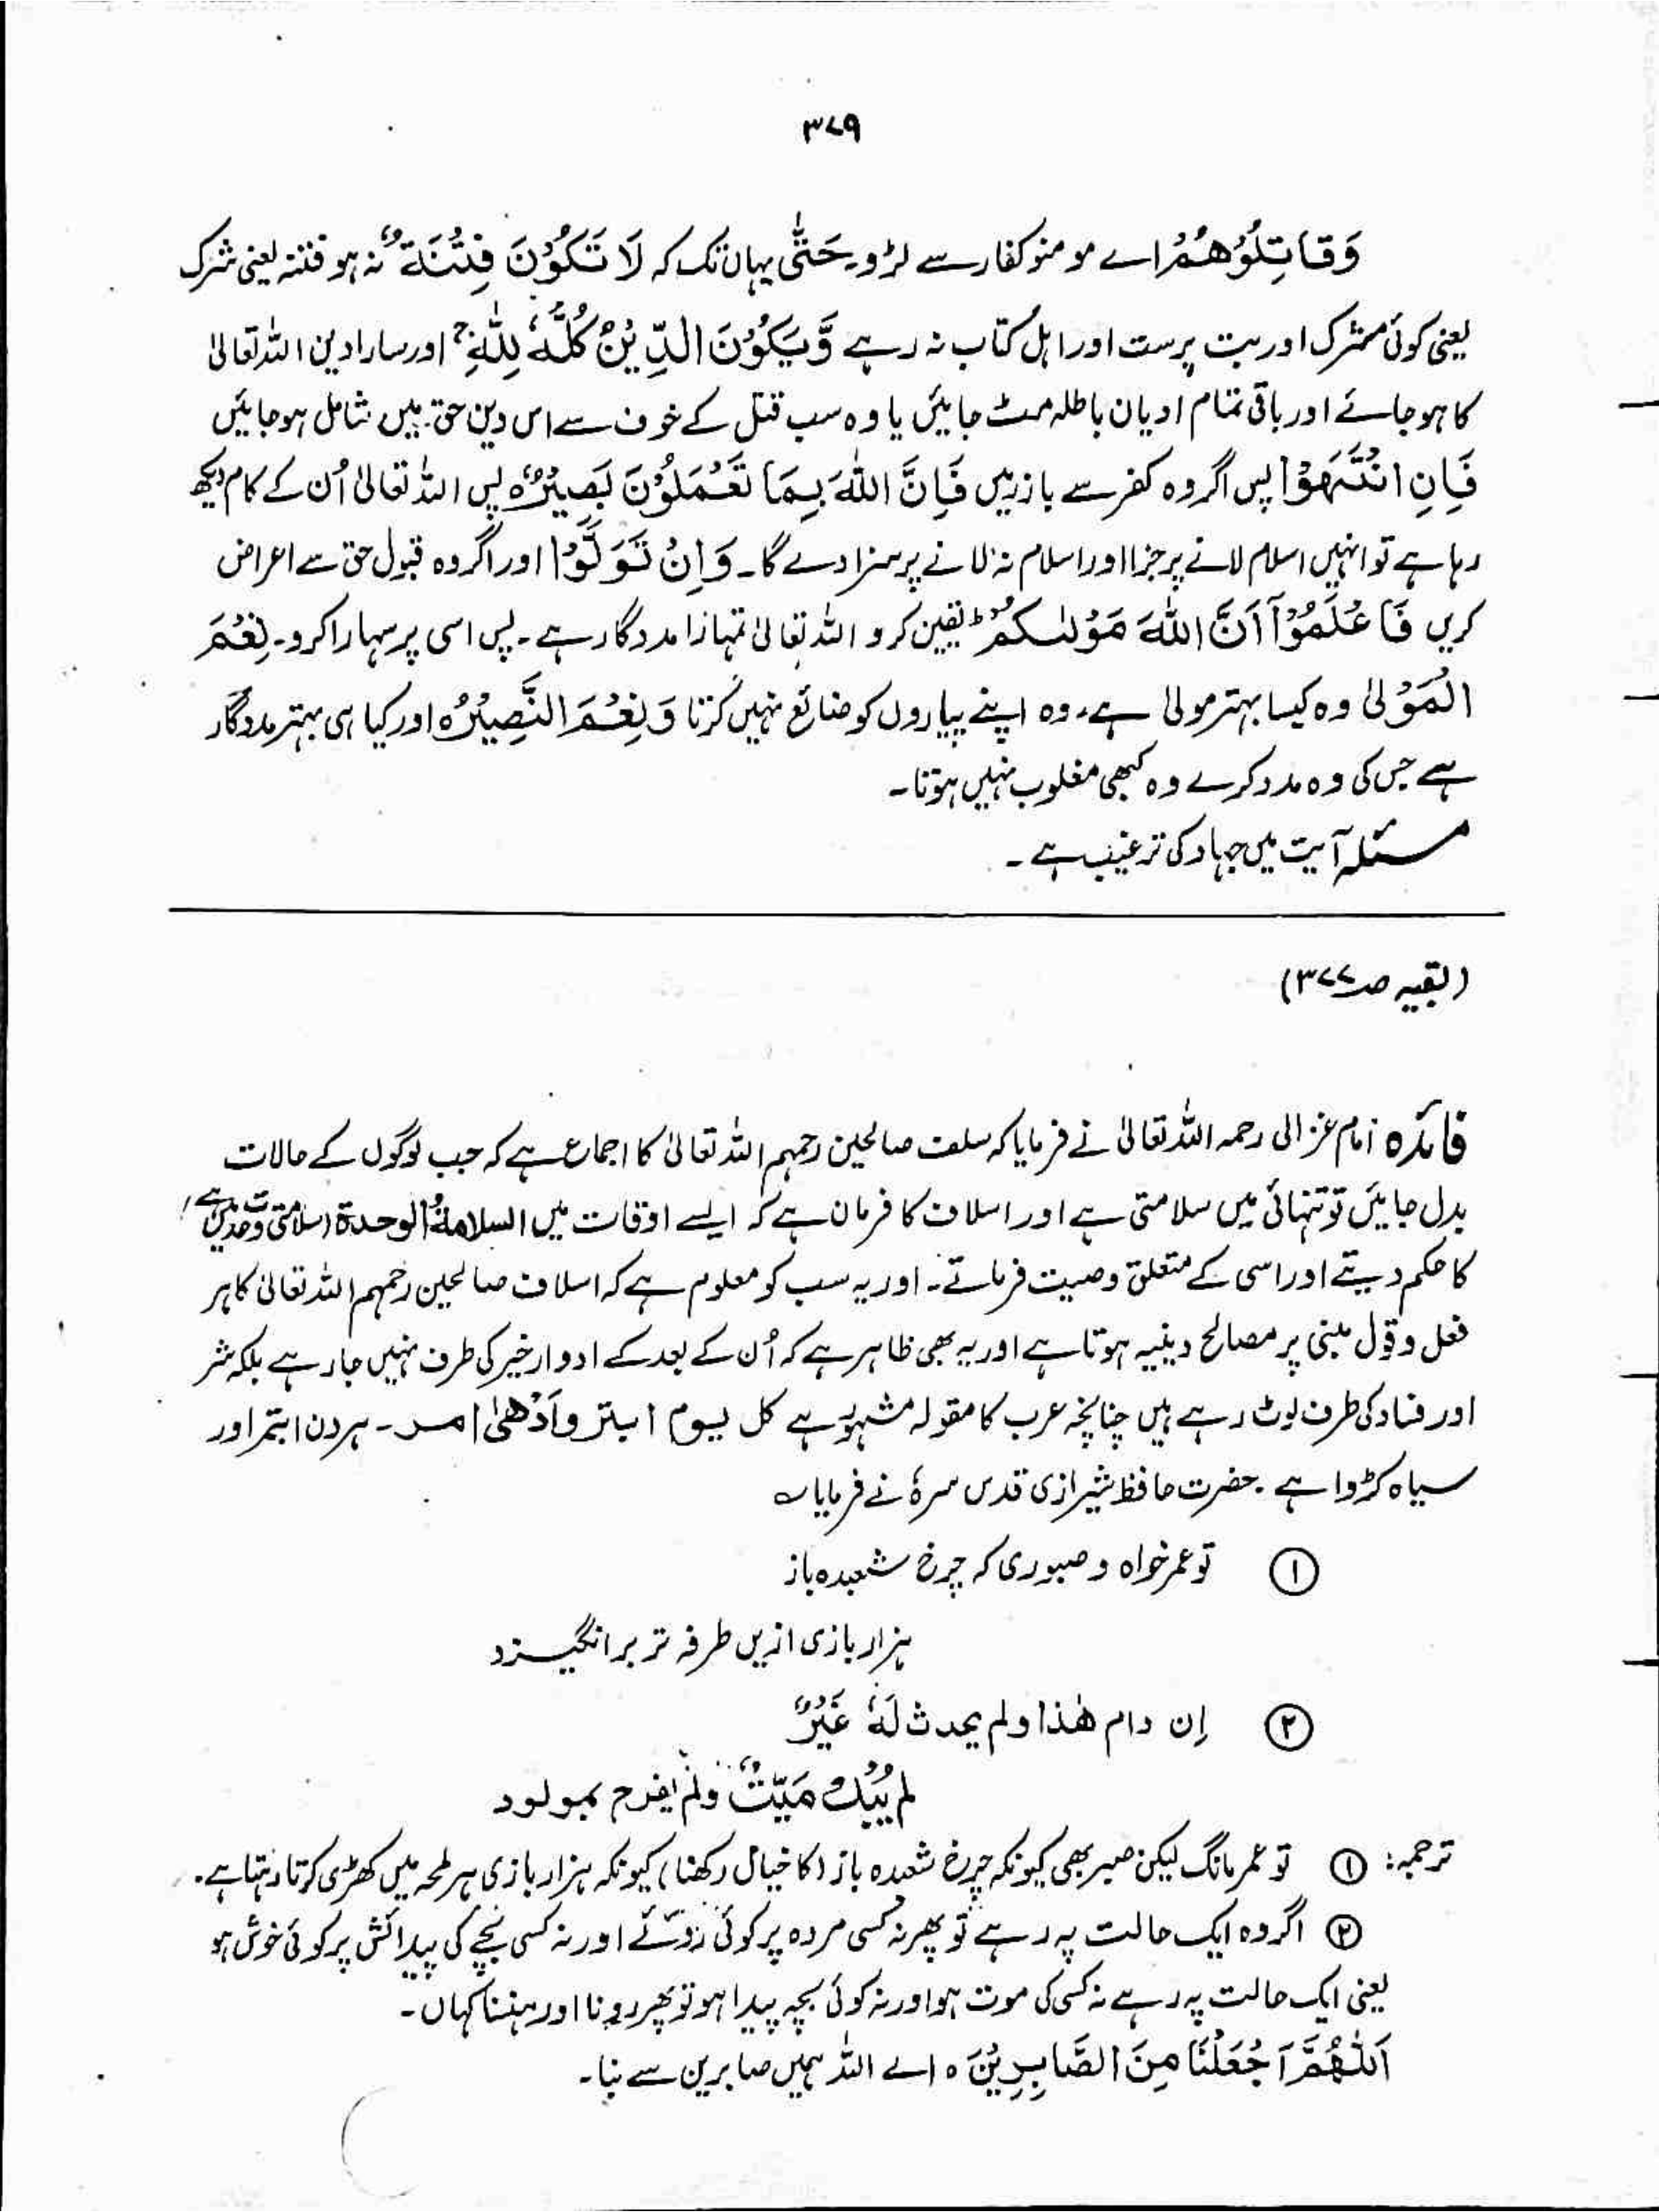 ۳۷۹
وَقَاتِلُوْهُمْ اے مومنو کفار سے لڑو۔ حَتّٰى یہاں تک کہ لَا تَكُوْنَ فِتْنَةٌ نہ ہو فتنہ یعنی شرک
یعنی کوئی مشرک اور بت پرست اور اہل کتاب نہ رہے وَّيَكُوْنَ الدِّيْنُ كُلُّهٗ لِلّٰهِ ۚ اور سارا دین اللہ تعالیٰ
کا ہو جائے اور باقی تمام ادیان باطلہ مٹ جائیں یا وہ سب قتل کے خوف سے اس دین حق میں شامل ہو جائیں
فَاِنِ انْتَهَوْا پس اگر وہ کفر سے باز رہیں فَاِنَّ اللّٰهَ بِمَا تَعْمَلُوْنَ بَصِيْرٌ ہ پس اللہ تعالیٰ اُن کے کام دیکھ
رہا ہے تو انہیں اسلام لانے پر جزا اور اسلام نہ لانے پر سزا دے گا۔ وَاِنْ تَوَلَّوْا اور اگر وہ قبول حق سے اعراض
کریں فَاعْلَمُوْٓا اَنَّ اللّٰهَ مَوْلٰىكُمْ ط یقین کرو اللہ تعالیٰ تمہارا مددگار ہے۔ پس اسی پر سہارا کرو۔ نِعْمَ
الْمَوْلٰى وہ کیسا بہتر مولیٰ ہے، وہ اپنے پیاروں کو ضائع نہیں کرتا وَنِعْمَ النَّصِيْرُ ہ اور کیا ہی بہتر مددگار
ہے جس کی وہ مدد کرے وہ کبھی مغلوب نہیں ہوتا۔
مسئلہ آیت میں جہاد کی ترغیب ہے۔
(بقیہ صـ ۳۷۷)
فائدہ امام غزالی رحمہ اللہ تعالیٰ نے فرمایا کہ سلف صالحین رحمہم اللہ تعالیٰ کا اجماع ہے کہ جب لوگوں کے حالات
بدل جائیں تو تنہائی میں سلامتی ہے اور اسلاف کا فرمان ہے کہ ایسے اوقات میں السلامۃ الوحدۃ (سلامتی وحدت میں ہے)
کا حکم دیتے اور اسی کے متعلق وصیت فرماتے۔ اور یہ سب کو معلوم ہے کہ اسلاف صالحین رحمہم اللہ تعالیٰ کا ہر
فعل و قول مبنی پر مصالح دینیہ ہوتا ہے اور یہ بھی ظاہر ہے کہ اُن کے بعد کے ادوار خیر کی طرف نہیں جا رہے بلکہ شر
اور فساد کی طرف لوٹ رہے ہیں چنانچہ عرب کا مقولہ مشہور ہے کل یوم ابتر وَاَدْھٰی امر۔ ہر دن ابتر اور
سیاہ کڑوا ہے۔ حضرت حافظ شیرازی قدس سرہٗ نے فرمایا ؎
① تو عمر خواہ و صبوری کہ چرخ شعبدہ باز
ہزار بازی ازیں طرفہ تر بر انگیزد
② اِن دام ھٰذا ولم یحدث لَہٗ غَیْرٌ
لم یُبْكَ مَیّتٌ ولم یفرح بمولود
ترجمہ: ① تو عمر مانگ لیکن صبر بھی کیونکہ چرخ شعبدہ باز (کا خیال رکھنا) کیونکہ ہزار بازی ہر لمحہ میں کھڑی کرتا رہتا ہے۔
② اگر وہ ایک حالت پہ رہے تو پھر نہ کسی مردہ پر کوئی روئے اور نہ کسی بچے کی پیدائش پر کوئی خوش ہو
یعنی ایک حالت پہ رہے نہ کسی کی موت ہو اور نہ کوئی بچہ پیدا ہو تو پھر رونا اور ہنسنا کہاں۔
اَللّٰهُمَّ اَجْعَلْنَا مِنَ الصَّابِرِيْنَ ہ اے اللہ ہمیں صابرین سے بنا۔